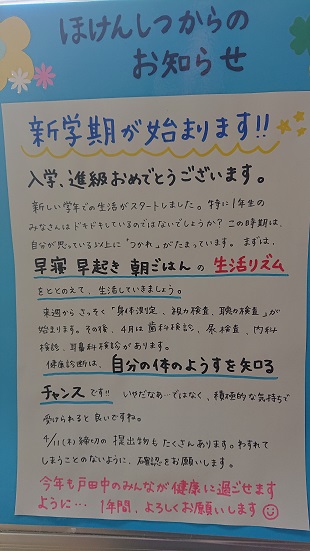 ほけんしつからの
お知らせ
新学期が始まります!!
入学、進級おめでとうございます。
新しい学年での生活がスタートしました。特に1年生の
みなさんはドキドキしているのではないでしょうか？この時期は、
自分が思っている以上に"つかれ"がたまっています。まずは、
早寝 早起き 朝ごはん の 生活リズム
をととのえて、生活していきましょう。
来週からさっそく「身体測定、視力検査、聴力検査」が
始まります。その後、4月は歯科検診、尿検査、内科
検診、耳鼻科検診があります。
健康診断は、自分の体のようすを知る
チャンスです!! いやだなぁ…ではなく、積極的な気持ちで
受けられると良いですね。
4/11(木)締切の提出物もたくさんあります。わすれて
しまうことのないように、確認をお願いします。
今年も戸田中のみんなが健康に過ごせます
ように… 1年間、よろしくお願いします